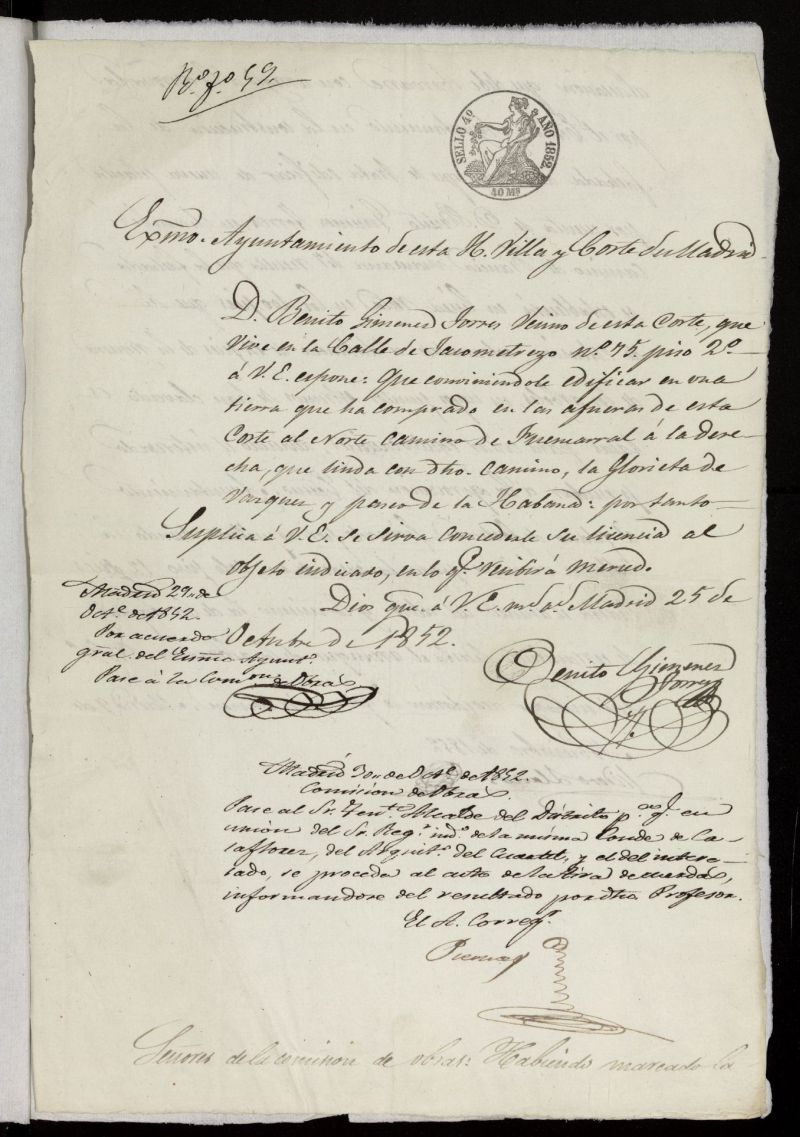 Rº. fº. 59.
SELLO 4º AÑO 1852.
40 Ms
Exmo. Ayuntamiento de esta H. Villa y Corte de Madrid.
D. Benito Gimenez Torres Vecino de esta Corte, que
vive en la Calle de Jacometrezo nº. 75. piso 2º
á V. E. espone: Que conviniendole edificar en una
tierra que ha comprado en las afueras de esta
Corte al Norte camino de Fuencarral á la dere-
cha, que linda con dho. camino, la Glorieta de
Vazquez y paseo de la Habana: por tanto
Suplica á V. E. se sirva concederle su licencia al
objeto indicado, en lo q. recibirá merced.
Dios gue. á V. E. ms. as. Madrid 25 de
Octubre de 1852.
Benito Gimenez
Torres
Madrid 29 de
Octe. de 1852.
Por acuerdo
gral. del Exmo Ayunto.
Pase á la Comon. de Obras
Madrid 30 de Oct. de 1852.
Comision de Obras.
Pase al Sr. Tente. Alcalde del Distrito pa. q. en
union del Sr. Regr. indo. de la misma Conde de Ca-
saflores, del Arquito. del Cuartel, y el del intere-
sado, se proceda al acto de la tira de cuerdas,
informandose del resultado por dho Profesor.
El A. Corregr.
Señores de la comision de obras: Habiendo marcado la